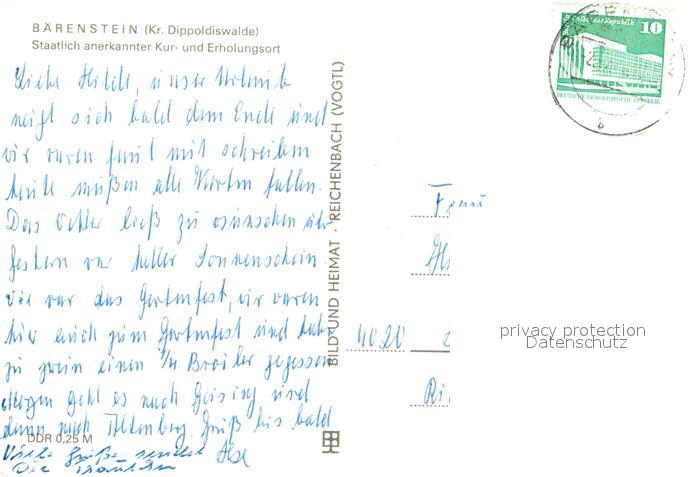 BÄRENSTEIN (Kr. Dippoldiswalde)
Staatlich anerkannter Kur- und Erholungsort
Palast der Republik
10
DEUTSCHE DEMOKRATISCHE REPUBLIK
Liebe Hilde, unser Urlaub
neigt sich bald dem Ende und
wir waren faul mit schreiben
heute müßen alle Karten fallen.
Das Wetter ließ zu wünschen
gestern war heller Sonnenschein.
war das Gartenfest, wir waren
hier auch zum Gartenfest und
zu zwein einen Broiler gegessen
Morgen geht es nach Geising und
dann nach Altenberg. Gruß bis bald
Viele Grüße sendet
Die
BILD UND HEIMAT · REICHENBACH (VOGTL)
DDR 0,25 M
Frau
4020
privacy protection
Datenschutz